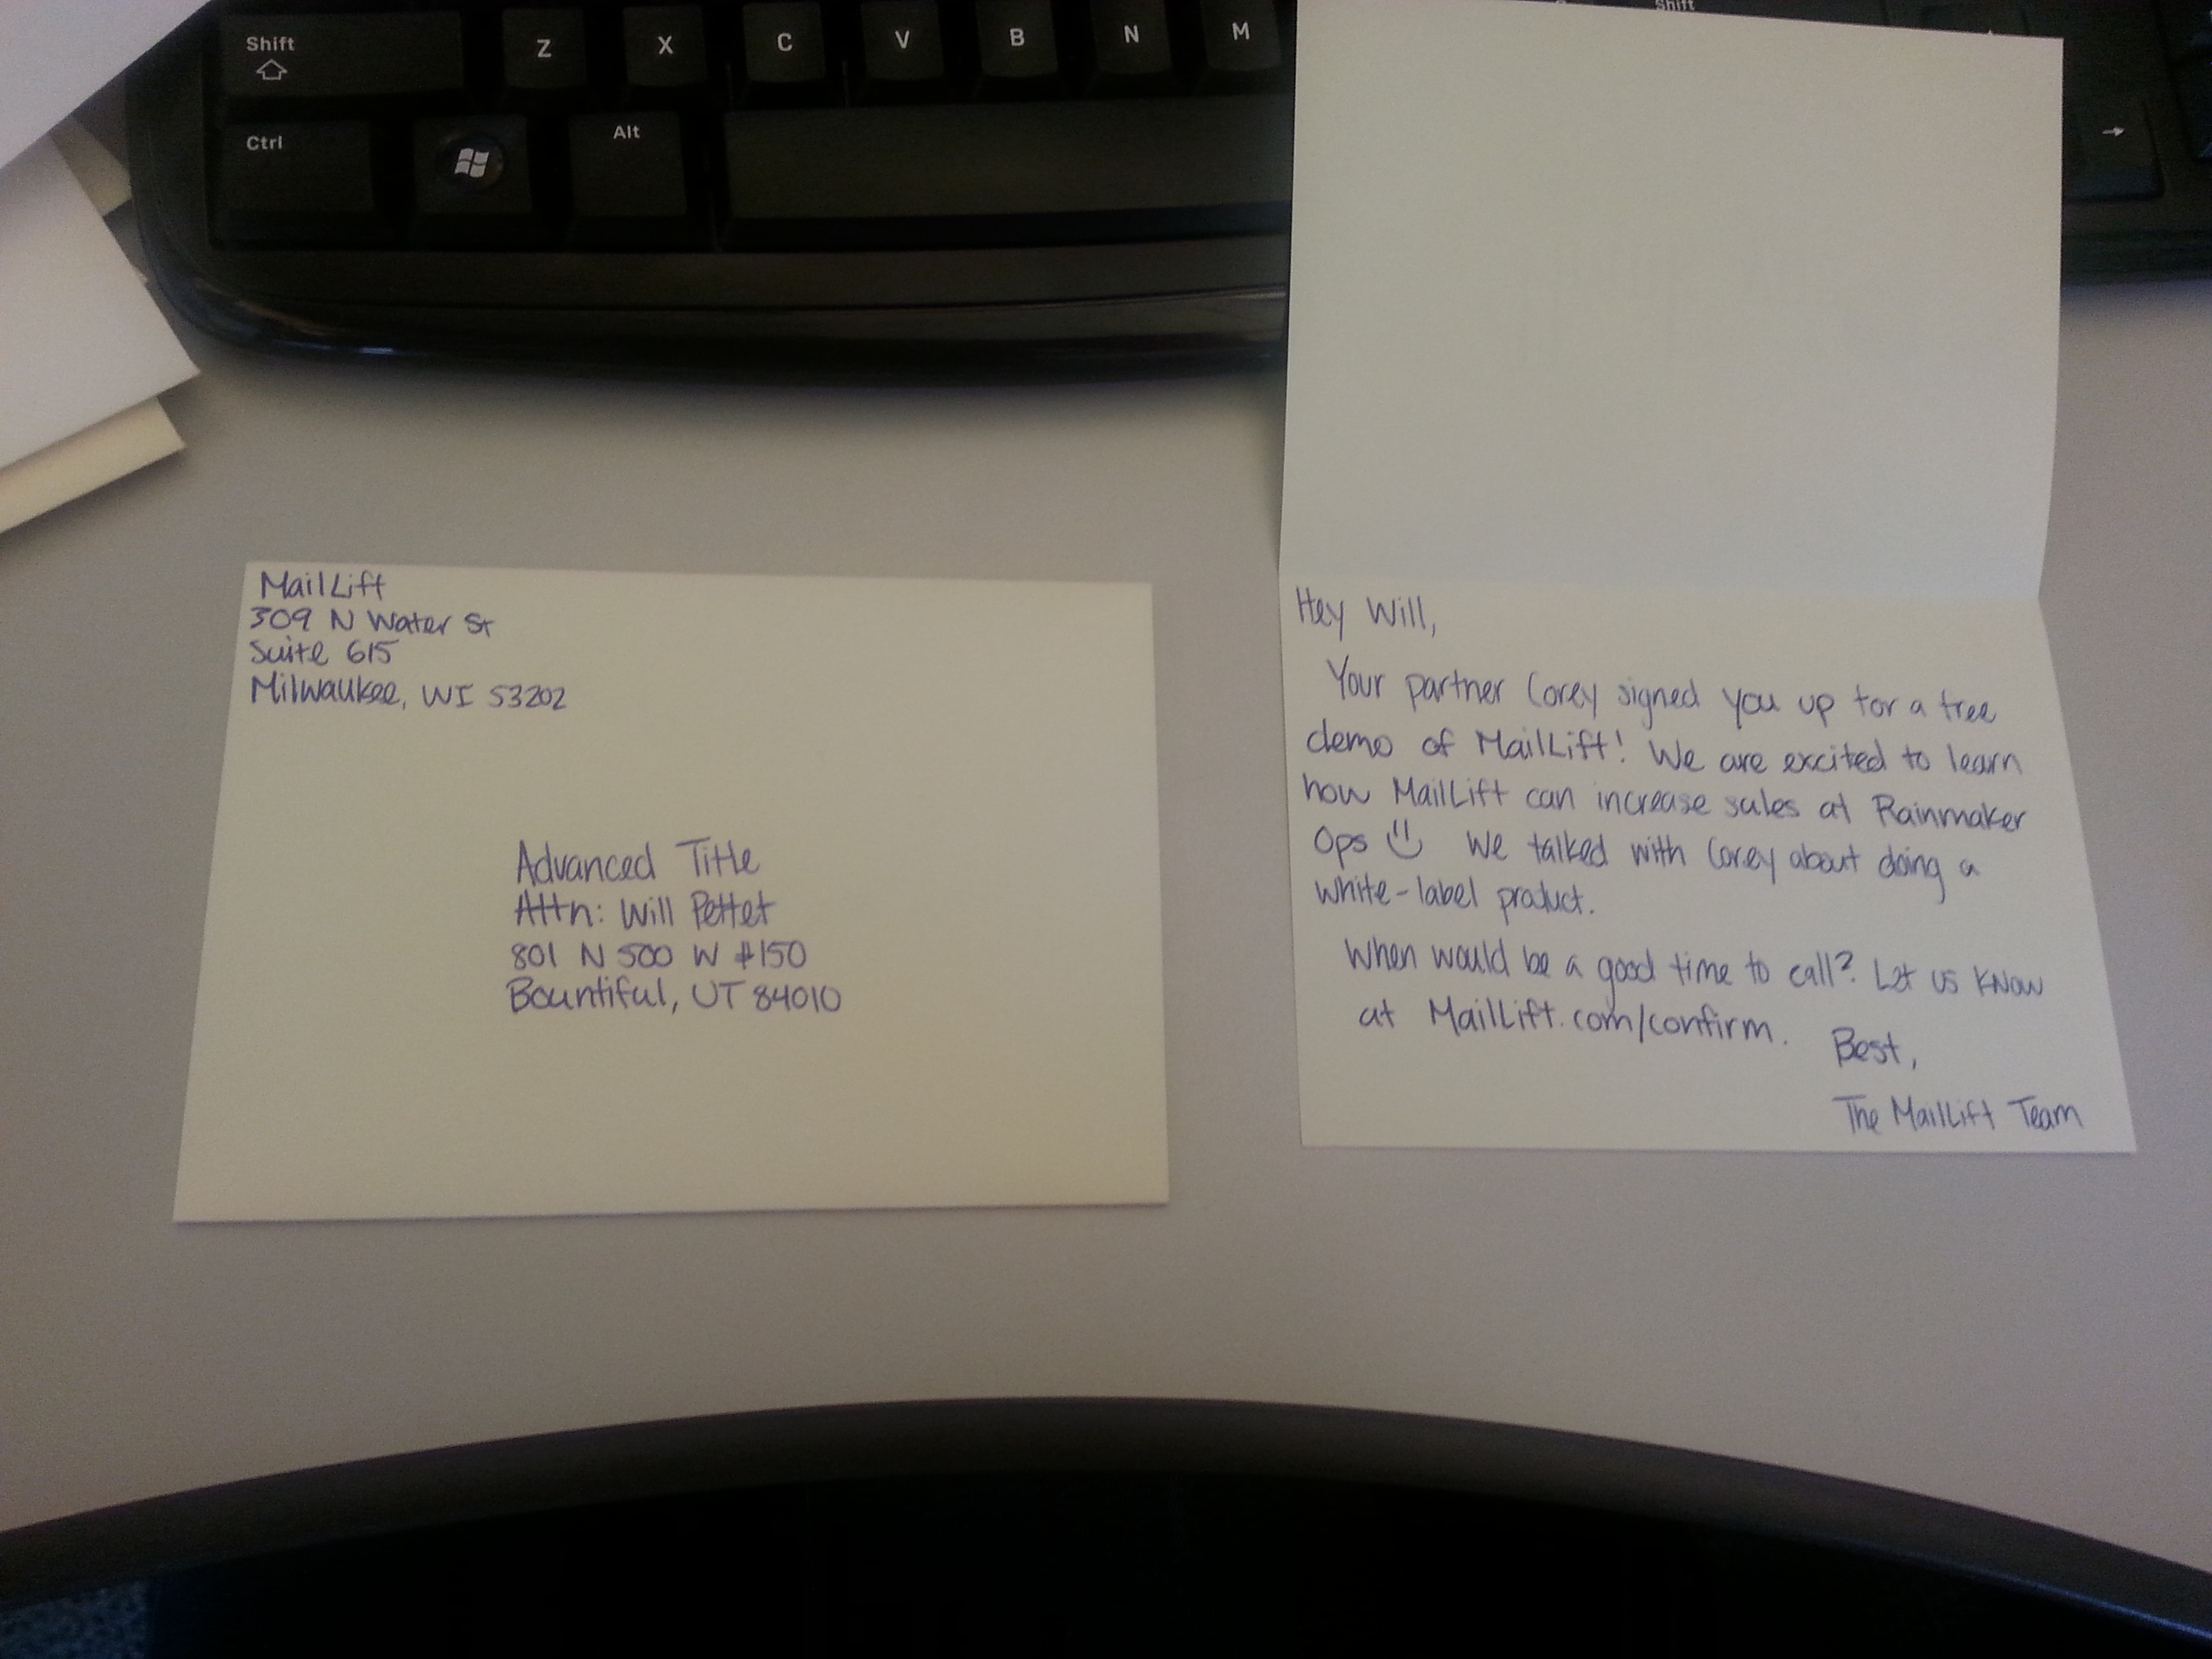 Shift
Z X C V B N M
Shift
Ctrl
Alt
→
MailLift
309 N Water St
Suite 615
Milwaukee, WI 53202
Advanced Title
Attn: Will Pettet
801 N 500 W #150
Bountiful, UT 84010
Hey Will,
Your partner Corey signed you up for a free
demo of MailLift! We are excited to learn
how MailLift can increase sales at Rainmaker
Ops We talked with Corey about doing a
white-label product.
When would be a good time to call? Let us know
at MailLift.com/confirm.
Best,
The MailLift Team